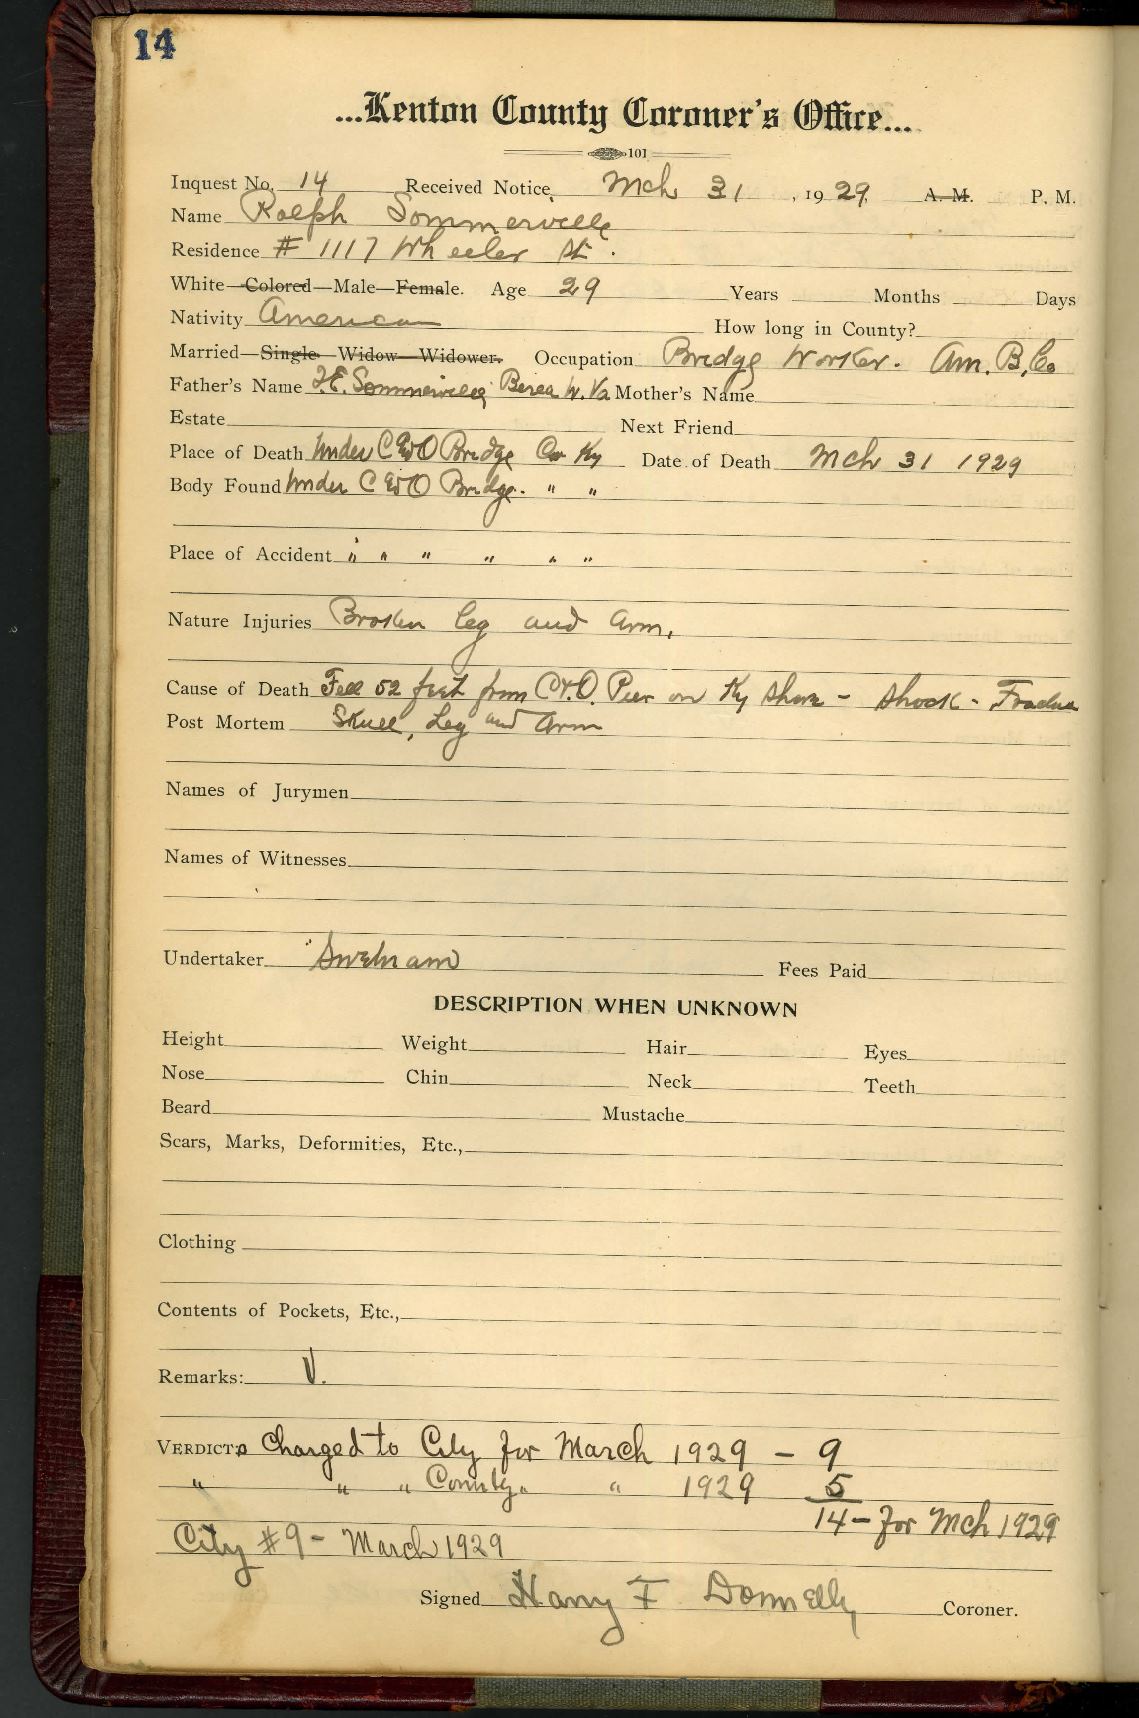 14
...Kenton County Coroner's Office...
101
Inquest No. 14 Received Notice Mch 31, 1929. A. M. P. M.
Name Ralph Sommerville
Residence # 1117 Wheeler St.
White—Colored—Male—Female. Age 29 Years Months Days
Nativity American How long in County?
Married—Single—Widow—Widower. Occupation Bridge Worker. Am. B. Co
Father's Name Sommerville Berea W. Va Mother's Name
Estate Next Friend
Place of Death Under C & O Bridge Cov Ky Date of Death Mch 31 1929
Body Found Under C & O Bridge. " "
Place of Accident " " " " " "
Nature Injuries Broken leg and arm.
Cause of Death Fell 52 feet from C & O. Pier on Ky Shore - Shock - Fracture
Post Mortem Skull, Leg and Arm
Names of Jurymen
Names of Witnesses
Undertaker Swetnam
Fees Paid
DESCRIPTION WHEN UNKNOWN
Height Weight Hair Eyes
Nose Chin Neck Teeth
Beard Mustache
Scars, Marks, Deformities, Etc.,
Clothing
Contents of Pockets, Etc.,
Remarks: V.
VERDICT: Charged to City for March 1929 - 9
" " " County " 1929 5
14 - for Mch 1929
City #9 - March 1929
Signed Harry F Donnelly Coroner.